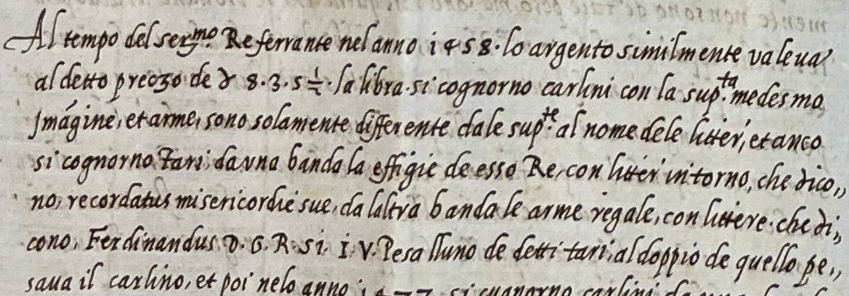 Al tempo del ser.mo Re ferrante nel anno 1458. lo argento similmente valeua
al detto prezzo de d 8.3.5½. la libra. si cognorno carlini con la sup.ta medesmo
Imágine, et arme, sono solamente differente dale sup.te al nome dele litter, et anco
si cognorno Tari, da vna banda la effigie de esso Re, con litter intorno, che dico,,
no, recordatus misericordie sue, da laltra banda le arme regale, con littere, che di,,
cono, Ferdinandus D. G. R. Si. I. V. Pesa lluno de detti tari, al doppio de quello pe,,
saua il carlino, et poi nelo anno si cugnorno carlini